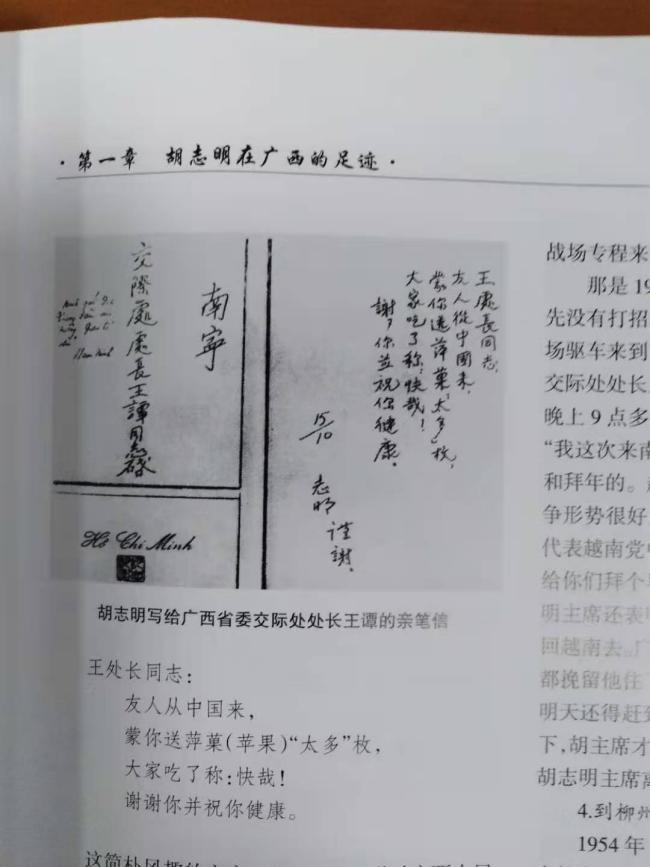 ·第一章 胡志明在广西的足迹·
王處長同志:
友人從中國来,
蒙你送萍菓"太多"枚,
大家吃了称:快哉!
謝々你並祝你健康.
15/10
志明 谨謝.
南寧
交際處處長王譚同志啓
Hồ Chí Minh
胡志明写给广西省委交际处处长王谭的亲笔信
王处长同志:
友人从中国来,
蒙你送萍菓(苹果)“太多”枚,
大家吃了称:快哉!
谢谢你并祝你健康。
战场专程来
那是19
先没有打招
场驱车来到
交际处处长
晚上9点多
“我这次来南
和拜年的。
争形势很好
代表越南党中
给你们拜个
明主席还表
回越南去。广
都挽留他住
明天还得赶到
下,胡主席才
胡志明主席离
4.到柳州
1954年